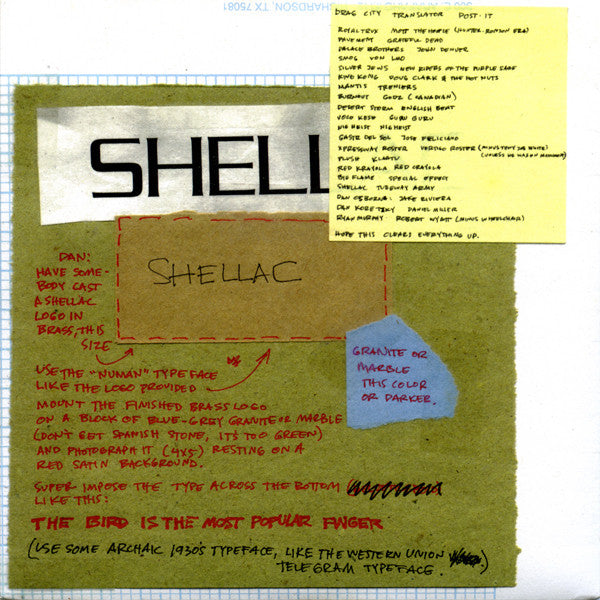 RICHARDSON, TX 75081
DRAG CITY TRANSLATOR POST-IT
ROYAL TRUX MOTT THE HOOPLE (HUNTER-RONSON ERA)
PAVEMENT GRATEFUL DEAD
PALACE BROTHERS JOHN DENVER
SMOG VON LMO
SILVER JEWS NEW RIDERS OF THE PURPLE SAGE
KING KONG DOUG CLARK & THE HOT NUTS
MANTIS TRENIERS
BURNOUT GODZ (CANADIAN)
DESERT STORM ENGLISH BEAT
VOID KESH GURU GURU
HIGHEIST HIGHEIST
GASTR DEL SOL JOSE FELICIANO
XPRESSWAY ROSTER VERTIGO ROSTER (MINUS TONY JOE WHITE)
(UNLESS HE WAS ON MONUMENT)
PLUSH KLAATU
RED KRAYOLA RED CRAYOLA
BIG FLAME SPECIAL EFFECT
SHELLAC TUBEWAY ARMY
DAN OSBORNE: JAKE RIVIERA
DAN KORETZKY DANIEL MILLER
RYAN MURPHY ROBERT WYATT (MINUS WHEELCHAIR)
HOPE THIS CLEARS EVERYTHING UP.
SHELL
SHELLAC
DAN:
HAVE SOME-
BODY CAST
A SHELLAC
LOGO IN
BRASS, THIS
SIZE
USE THE "NUMAN" TYPEFACE
LIKE THE LOGO PROVIDED
GRANITE OR
MARBLE
THIS COLOR
OR DARKER.
MOUNT THE FINISHED BRASS LOGO
ON A BLOCK OF BLUE-GREY GRANITE OR MARBLE
(DON'T GET SPANISH STONE, IT'S TOO GREEN)
AND PHOTOGRAPH IT (4x5) RESTING ON A
RED SATIN BACKGROUND.
SUPER IMPOSE THE TYPE ACROSS THE BOTTOM
LIKE THIS:
THE BIRD IS THE MOST POPULAR FINGER
(USE SOME ARCHAIC 1930'S TYPEFACE, LIKE THE WESTERN UNION
TELEGRAM TYPEFACE.)